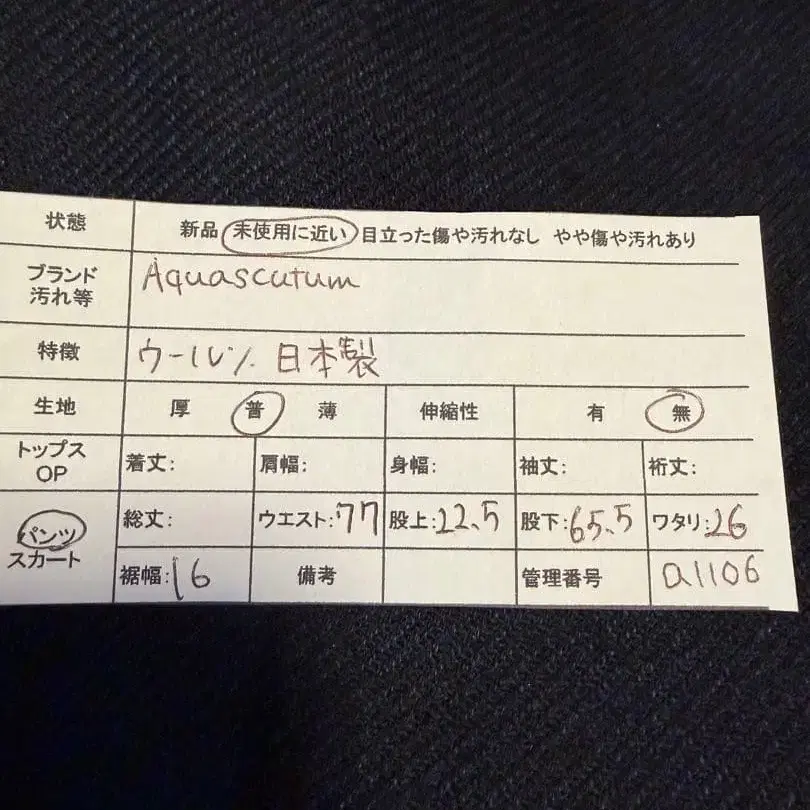 状態 新品 未使用に近い 目立った傷や汚れなし やや傷や汚れあり
ブランド Aquascutum
汚れ等
特徴 ウール% 日本製
生地 厚 普 薄 伸縮性 有 無
トップス 着丈: 肩幅: 身幅: 袖丈: 裄丈:
OP
パンツ 総丈: ウエスト:77 股上:22.5 股下:65.5 ワタリ:26
スカート
裾幅:16 備考 管理番号 a1106